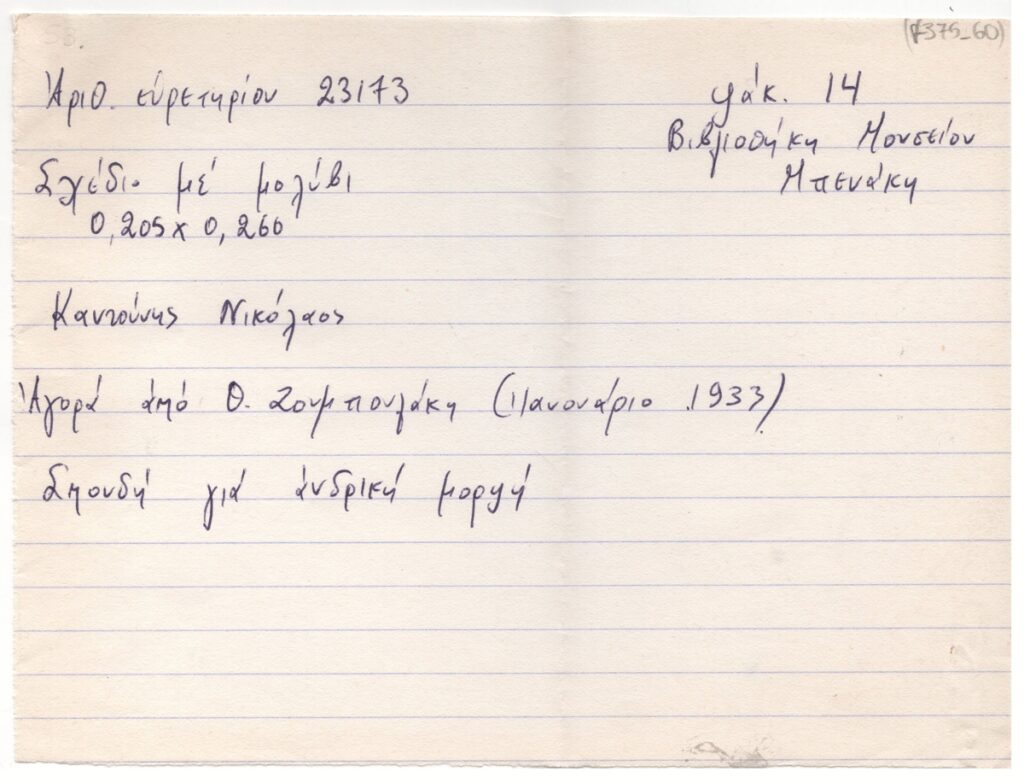 (F375_60)
Ἀριθ. εὑρετηρίου 23173
φάκ. 14
Βιβλιοθήκη Μουσείου
Μπενάκη
Σχέδιο μέ μολύβι
0,205 x 0,260
Καντούνης Νικόλαος
Ἀγορά ἀπό Θ. Ζουμπουλάκη (Ιανουάριο 1933)
Σπουδή γιά ἀνδρική μορφή